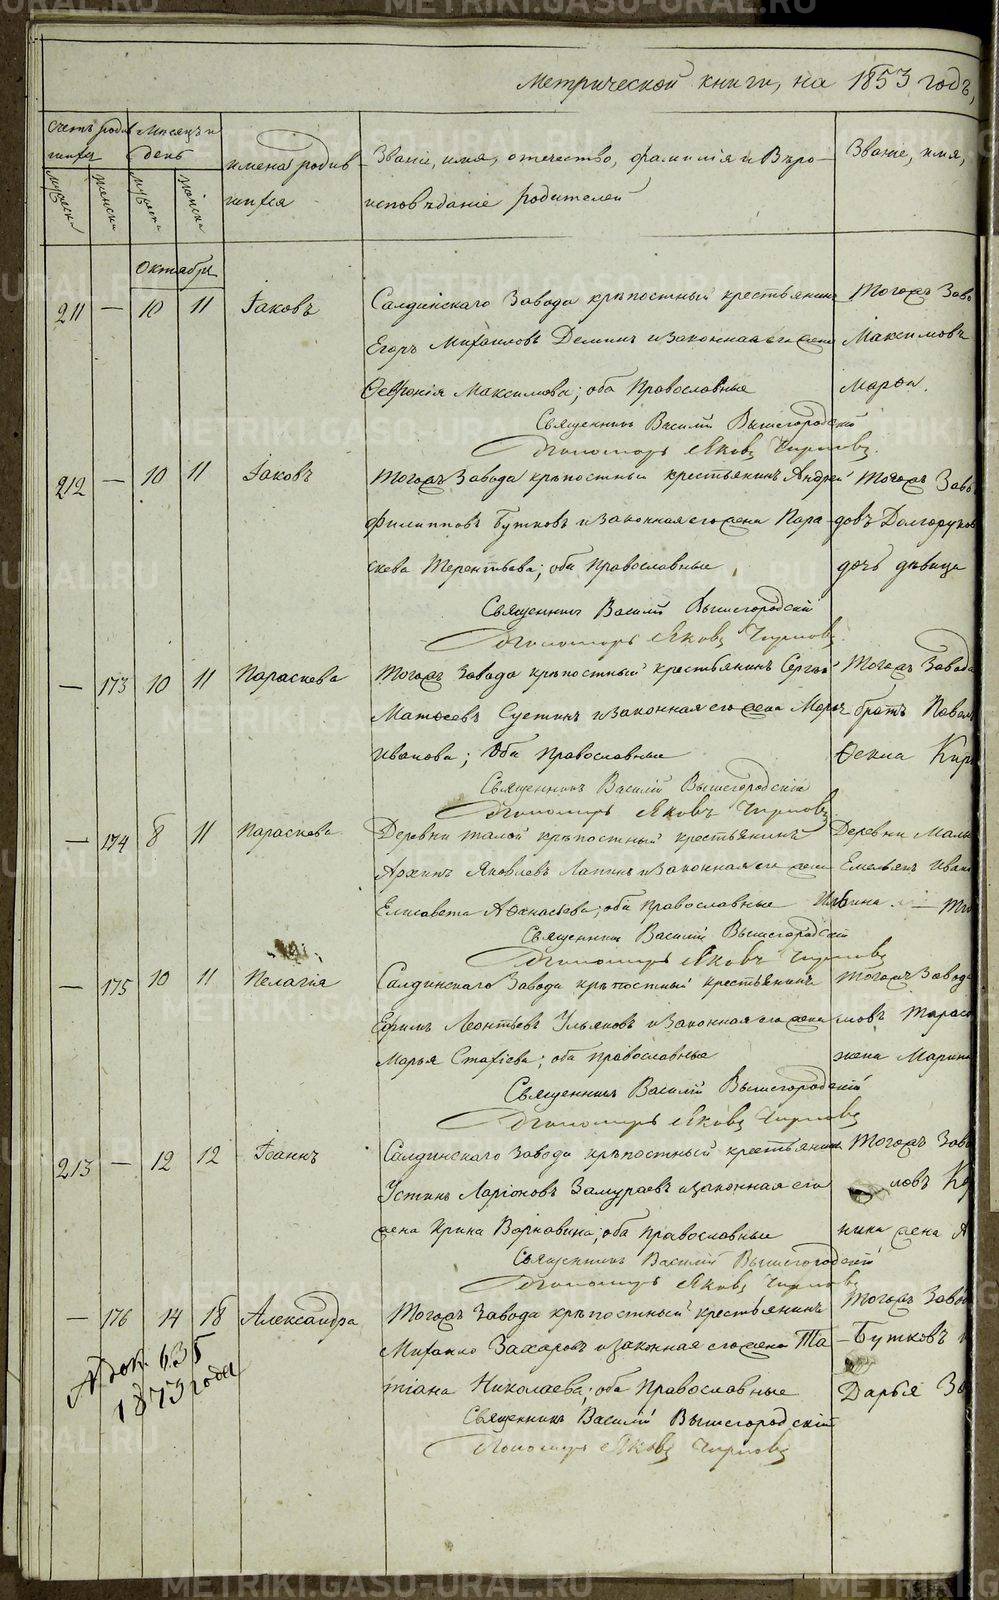 Метрической книги, на 1853 годъ,
Счетъ родив
шихся
Мѣсяцъ и
день
имена родив
шихся
Званіе, имя, отечество, фамилія и Вѣро-
исповѣданіе родителей
Званіе, имя,
мужеска
женска
Октябрь
211 — 10 11 Іаковъ
Салдинскаго Завода крѣпостный крестьянинъ
Егоръ Михаиловъ Деминъ и законная его жена
Ѳевронія Максимова; оба Православные
Священникъ Василій Вышегородскій
Пономарь Яковъ
Тогожъ Заво
Максимовъ
212 — 10 11 Іаковъ
Тогожъ Завода крѣпостный крестьянинъ Андрей
Филипповъ Бутковъ и законная его жена Пара-
скева Терентьева; оба Православные
Священникъ Василій Вышегородскій
Пономарь Яковъ
Тогожъ Заво
довъ Долгоруков
дочь дѣвица
— 173 10 11 Параскева
Тогожъ Завода крѣпостный крестьянинъ Сергѣй
Матѳеевъ Суетинъ и законная его жена Марья
Иванова; оба Православные
Священникъ Василій Вышегородскій
Пономарь Яковъ
Тогожъ Завода
братъ Павелъ
Ѳекла Кир
— 174 8 11 Параскева
Деревни Малой крѣпостный крестьянинъ
Архипъ Яковлевъ Лапинъ и законная его жена
Елисавета Аѳанасьева; оба Православные
Священникъ Василій Вышегородскій
Пономарь Яковъ
Деревни Мало
Емельянъ Иван
Ильина.
— 175 10 11 Пелагія
Салдинскаго Завода крѣпостный крестьянинъ
Ефимъ Леонтьевъ Ульяновъ и законная его жена
Марья Стахіева; оба Православные
Священникъ Василій Вышегородскій
Пономарь Яковъ
Тогожъ Завода
мовъ Тарасо
жена Марина
213 — 12 12 Іоаннъ
Салдинскаго Завода крѣпостный крестьянинъ
Устинъ Ларіоновъ Замураевъ и законная его
жена Ирина Варнавина; оба Православные
Священникъ Василій Вышегородскій
Пономарь Яковъ
Тогожъ Заво
ловъ
ника жена А
— 176 14 18 Александра
Тогожъ Завода крѣпостный крестьянинъ
Михаило Захаровъ и законная его жена Та-
тіана Николаева; оба Православные
Священникъ Василій Вышегородскій
Пономарь Яковъ
Тогожъ Заво
Бутковъ
Дарья За
№ 635
1873 года
METRIKI.GASO-URAL.RU